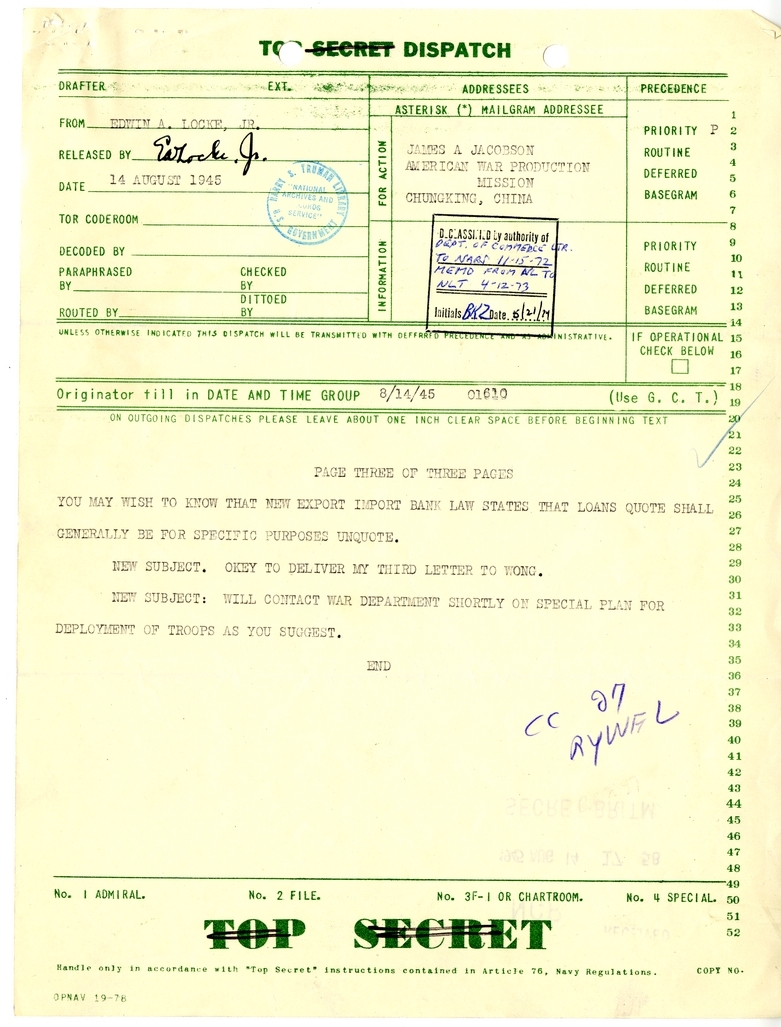 TOP SECRET DISPATCH
DRAFTER EXT. ADDRESSEES PRECEDENCE
ASTERISK (*) MAILGRAM ADDRESSEE
FROM EDWIN A. LOCKE, JR.
RELEASED BY EALocke, Jr.
DATE 14 AUGUST 1945
TOR CODEROOM
DECODED BY
PARAPHRASED CHECKED
BY BY
DITTOED
ROUTED BY BY
HARRY S. TRUMAN LIBRARY
"NATIONAL
ARCHIVES AND
RECORDS
SERVICE"
U.S. GOVERNMENT
FOR ACTION
JAMES A JACOBSON
AMERICAN WAR PRODUCTION
MISSION
CHUNGKING, CHINA
INFORMATION
DECLASSIFIED by authority of
DEPT. OF COMMERCE LTR.
TO NARS 11-15-72
MEMO FROM NL TO
NLT 4-12-73
Initials Date
PRIORITY P
ROUTINE
DEFERRED
BASEGRAM
PRIORITY
ROUTINE
DEFERRED
BASEGRAM
UNLESS OTHERWISE INDICATED THIS DISPATCH WILL BE TRANSMITTED WITH DEFERRED PRECEDENCE AND AS ADMINISTRATIVE.
IF OPERATIONAL
CHECK BELOW
Originator fill in DATE AND TIME GROUP 8/14/45 01610 (Use G. C. T.)
ON OUTGOING DISPATCHES PLEASE LEAVE ABOUT ONE INCH CLEAR SPACE BEFORE BEGINNING TEXT
PAGE THREE OF THREE PAGES
YOU MAY WISH TO KNOW THAT NEW EXPORT IMPORT BANK LAW STATES THAT LOANS QUOTE SHALL
GENERALLY BE FOR SPECIFIC PURPOSES UNQUOTE.
NEW SUBJECT. OKEY TO DELIVER MY THIRD LETTER TO WONG.
NEW SUBJECT: WILL CONTACT WAR DEPARTMENT SHORTLY ON SPECIAL PLAN FOR
DEPLOYMENT OF TROOPS AS YOU SUGGEST.
END
CC 27
1
2
3
4
5
6
7
8
9
10
11
12
13
14
15
16
17
18
19
20
21
22
23
24
25
26
27
28
29
30
31
32
33
34
35
36
37
38
39
40
41
42
43
44
45
46
47
48
49
50
51
52
No. 1 ADMIRAL. No. 2 FILE. No. 3F-1 OR CHARTROOM. No. 4 SPECIAL.
TOP SECRET
Handle only in accordance with "Top Secret" instructions contained in Article 76, Navy Regulations. COPY NO.
OPNAV 19-78